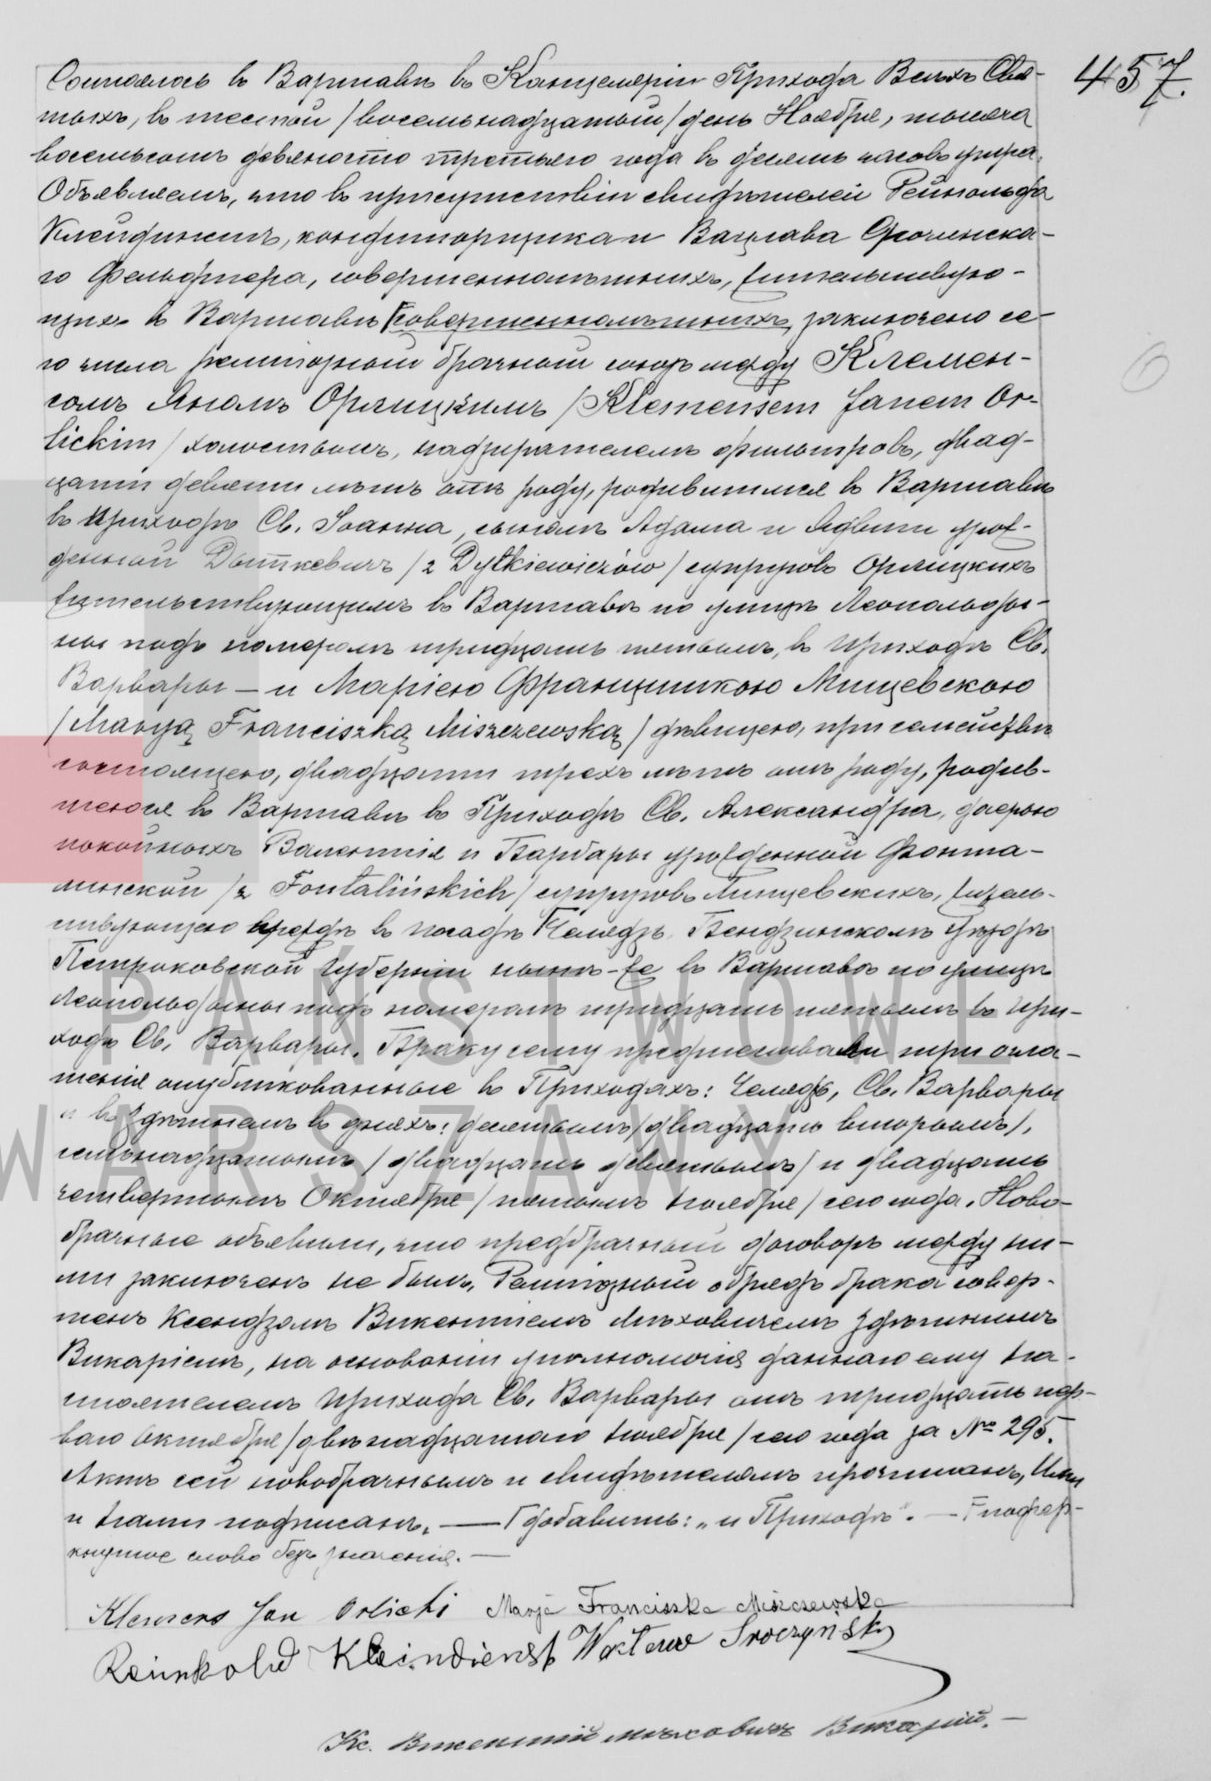 457.
Состоялось въ Варшавѣ въ Канцеляріи Прихода Всѣхъ Свя-
тыхъ, въ шестой /восемьнадцатый/ день Ноября, тысяча
восемьсотъ девяносто третьяго года въ десять часовъ утра.
Объявляемъ, что въ присутствіи свидѣтелей Рейнольда
Клейдинстъ, кондиторщика и Вацлава Сро
го фельдшера, совершеннолѣтнихъ, жительствую-
щихъ въ Варшавѣ [совершеннолѣтнихъ, заключено се-
го числа религіозный брачный союзъ между Клемен-
сомъ Яномъ Орлицкимъ /Klemensem Janem Or-
lickim/ холостымъ, надзирателемъ фильтровъ, двад-
цати девяти лѣтъ отъ роду, родившимся въ Варшавѣ
въ приходѣ Св. Іоанна, сыномъ Адама и Ядвиги урож-
денной Дыткевичъ /z Dytkiewiczów/ супруговъ Орлицкихъ
жительствующимъ въ Варшавѣ по улицѣ Леопольды-
ны подъ номеромъ тридцать пятымъ, въ приходѣ Св.
Варвары — и Маріею Францишкою Мищевскою
/Maryą Franciszką Miszczewską/ дѣвицею, при семействѣ
состоящею, двадцати трехъ лѣтъ отъ роду, родив-
шеюся въ Варшавѣ въ Приходѣ Св. Александра, дочерью
покойныхъ Валентія и Барбары урожденной Фонта-
линской /z Fontalińskich/ супруговъ Мищевскихъ, житель-
ствующею прежде въ посадѣ Челядзь Бендзинскомъ уѣздѣ
Петроковской Губерніи нынѣ-же въ Варшавѣ по улицѣ
Леопольдыны подъ номеромъ тридцать пятымъ въ при-
ходѣ Св. Варвары. Браку сему предшествовали три огла-
шенія опубликованные въ Приходахъ: Челядзь, Св. Варвары
и въ здѣшнемъ въ дняхъ: десятымъ /двадцать вторымъ/,
семьнадцатымъ /двадцать девятымъ/ и двадцать
четвертымъ Октября /пятымъ Ноября/ сего года. Ново-
брачные объявили, что предбрачный договоръ между ни-
ми заключенъ не былъ. Религіозный обрядъ брака совер-
шенъ Ксендзомъ Викентіемъ Мѣховичемъ здѣшнимъ
Викаріемъ, на основаніи уполномочія даннаго ему на-
стоятелемъ прихода Св. Варвары отъ тридцать пер-
ваго Октября /двѣнадцатаго Ноября/ сего года за № 295.
Актъ сей новобрачнымъ и свидѣтелямъ прочитанъ, Ими
и Нами подписанъ. — [добавить: „и Приходъ". — [подчер-
кнутое слово безъ значенія. —
Klemens Jan Orlicki Marja Franciszka Miszczewska
Reinhold Kleindienst Wacław Sroczyński
Кс. Викентій Мѣховичъ Викарій. —
PAŃSTWOWE
WARSZAWY